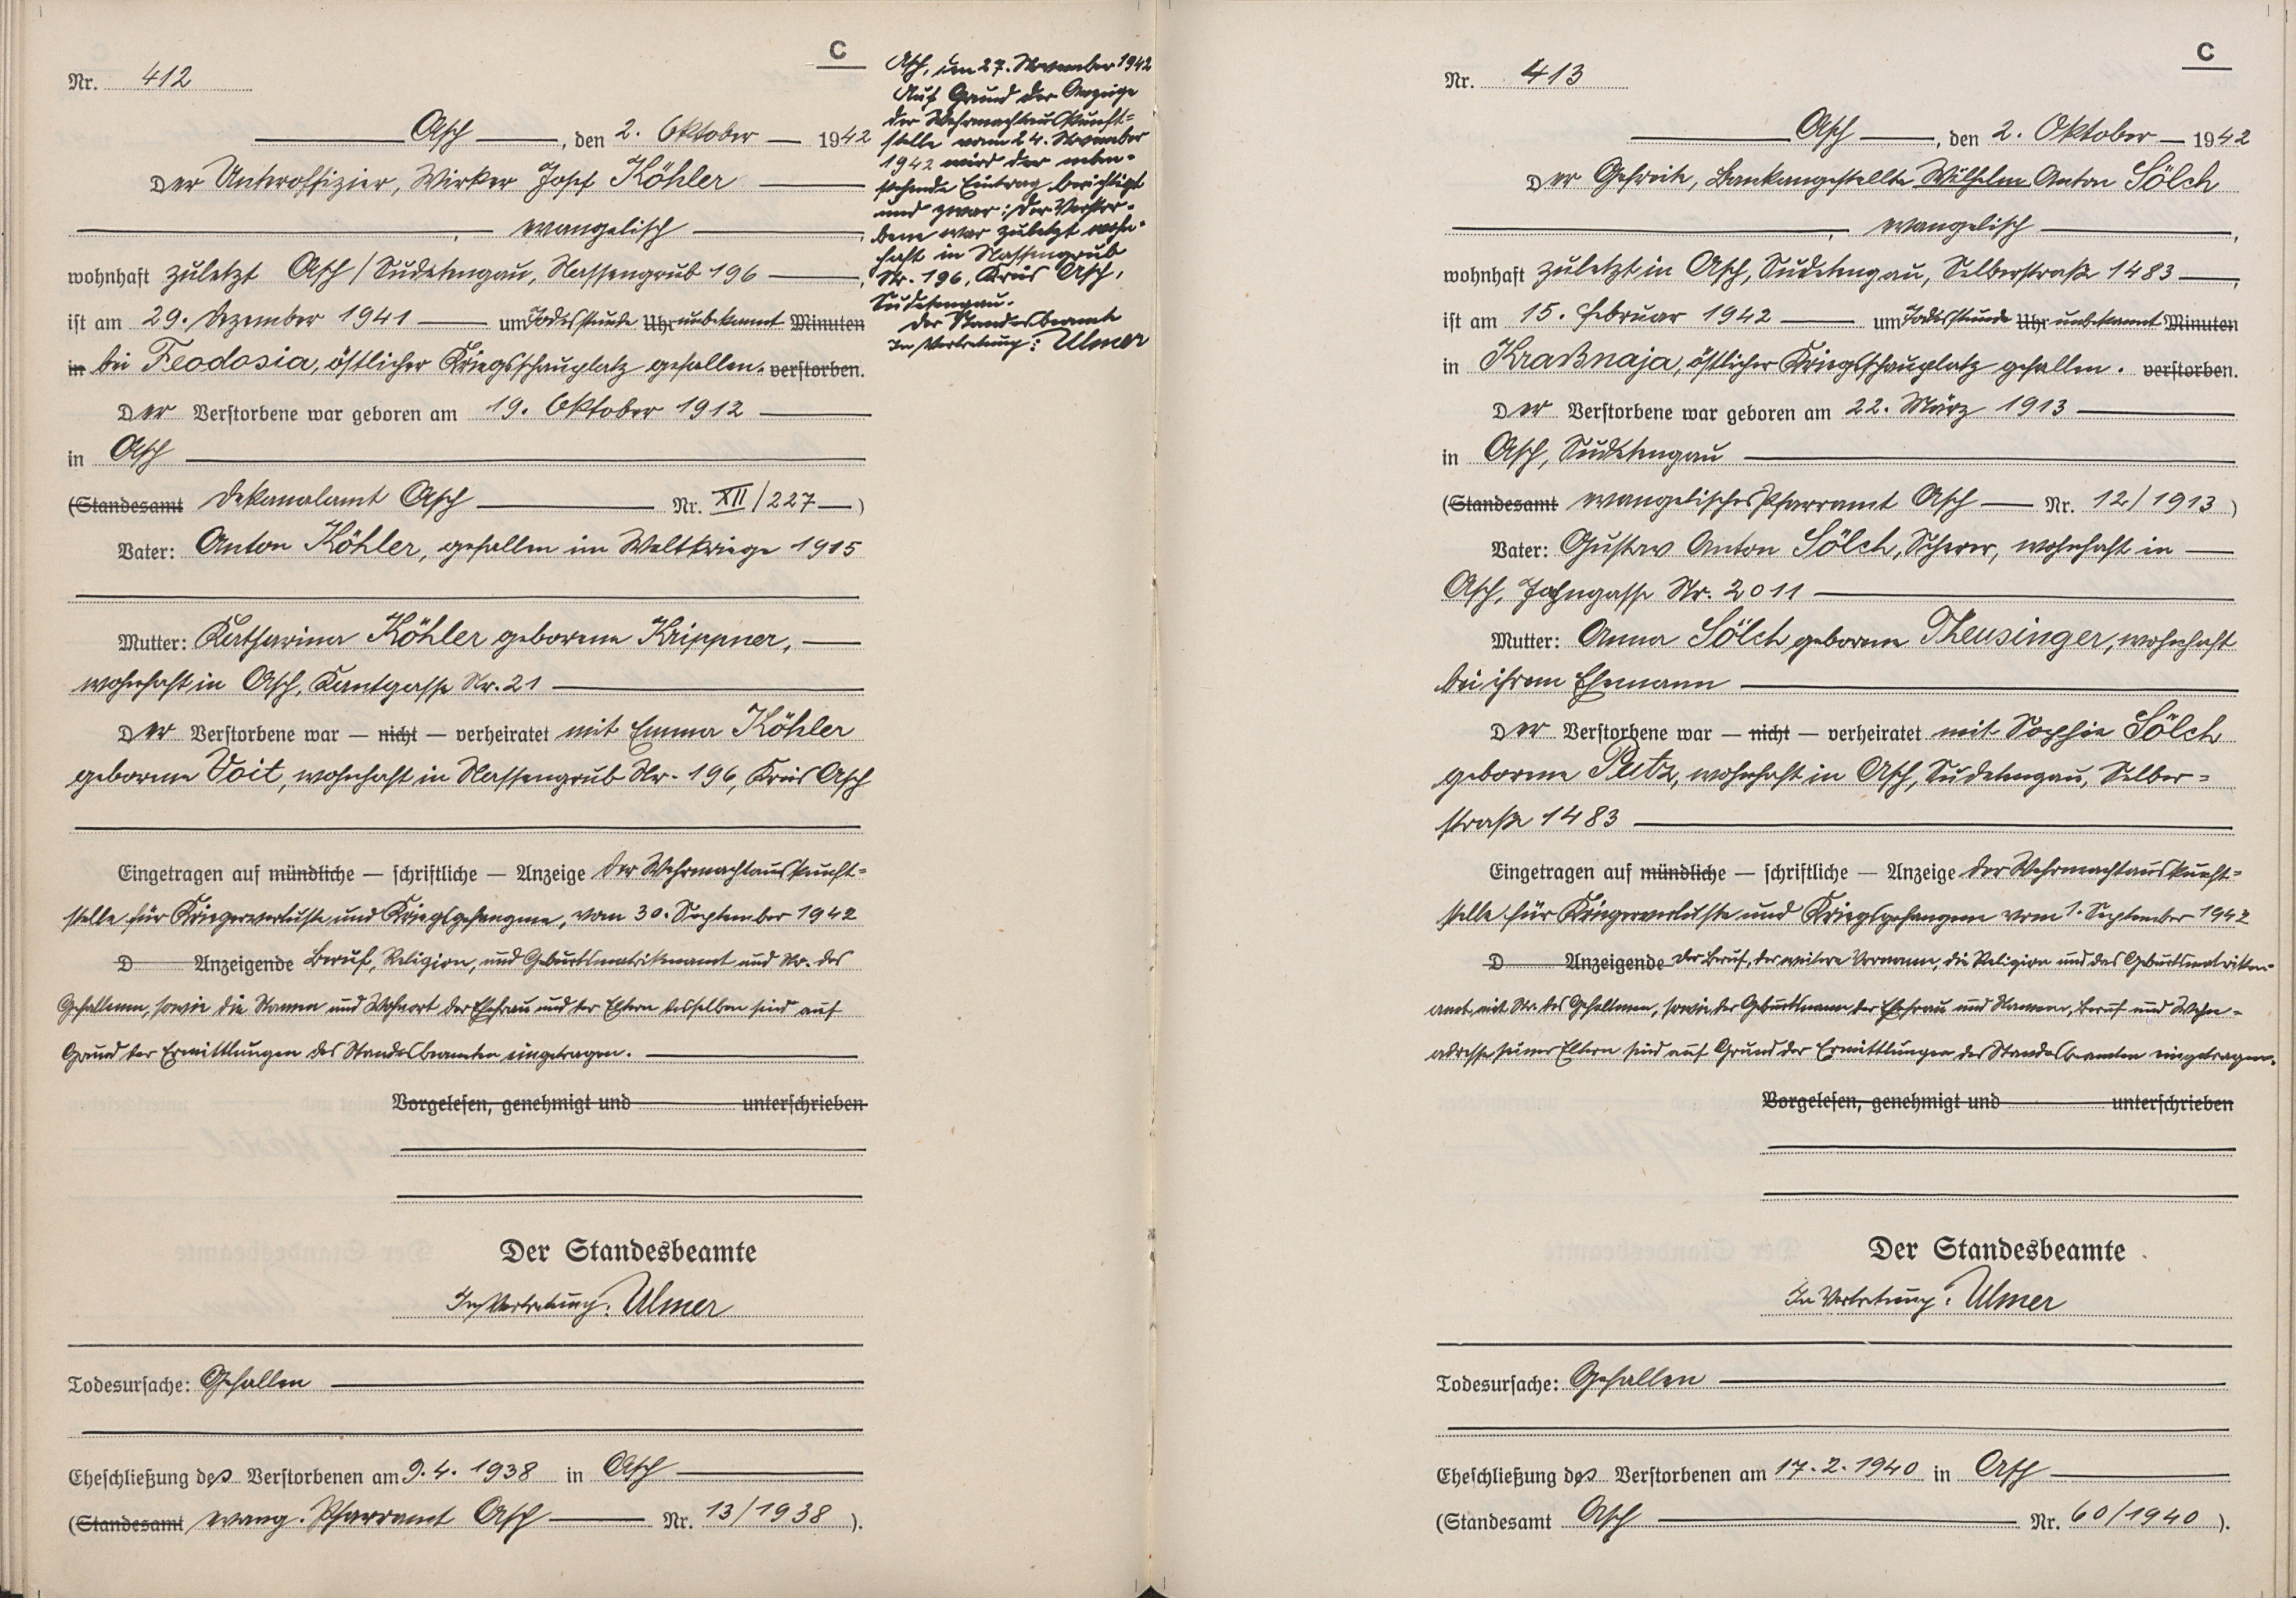 C
Nr. 412
Asch, den 2. Oktober 1942
Der Unteroffizier, Wirker Josef Köhler
, evangelisch,
wohnhaft zuletzt Asch/Sudetengau, Nassengrub 196,
ist am 29. Dezember 1941 um Todesstunde Uhr unbekannt Minuten
in bei Feodosia, östlicher Kriegsschauplatz gefallen. verstorben.
Der Verstorbene war geboren am 19. Oktober 1912
in Asch
(Standesamt Dekanalamt Asch Nr. XII/227)
Vater: Anton Köhler, gefallen im Weltkriege 1915
Mutter: Katharina Köhler geborene Krippner,
wohnhaft in Asch, Kantgasse Nr. 21
Der Verstorbene war — nicht — verheiratet mit Emma Köhler
geborene Voit, wohnhaft in Nassengrub Nr. 196, Kreis Asch
Eingetragen auf mündliche — schriftliche — Anzeige der Wehrmachtauskunft-
stelle für Kriegerverluste und Kriegsgefangene, vom 30. September 1942
D Anzeigende Beruf, Religion, und Geburtsmatrikenamt und Nr. des
Gefallenen, sowie die Namen und Wohnort der Ehefrau und der Eltern desselben sind auf
Grund der Ermittlungen des Standesbeamten eingetragen.
Vorgelesen, genehmigt und unterschrieben
Der Standesbeamte
In Vertretung: Ulmer
Todesursache: Gefallen
Eheschließung des Verstorbenen am 9.4.1938 in Asch
(Standesamt evang. Pfarramt Asch Nr. 13/1938).
Asch, den 27. November 1942
Auf Grund der Anzeige
der Wehrmachtauskunft-
stelle vom 24. November
1942 wird der neben-
stehende Eintrag berichtigt
und zwar: Der Verstor-
bene war zuletzt wohn-
haft in Nassengrub
Nr. 196, Kreis Asch,
Sudetengau.
Der Standesbeamte
In Vertretung: Ulmer
C
Nr. 413
Asch, den 2. Oktober 1942
Der Gefreite, Bankangestellte Wilhelm Anton Sölch
, evangelisch,
wohnhaft zuletzt in Asch, Sudetengau, Selberstraße 1483,
ist am 15. Februar 1942 um Todesstunde Uhr unbekannt Minuten
in Kraßnaja, östlicher Kriegsschauplatz gefallen. verstorben.
Der Verstorbene war geboren am 22. März 1913
in Asch, Sudetengau
(Standesamt evangelisches Pfarramt Asch Nr. 12/1913)
Vater: Gustav Anton Sölch, Scherer, wohnhaft in
Asch, Jahngasse Nr. 2011
Mutter: Anna Sölch geborene Theusinger, wohnhaft
bei ihrem Ehemann
Der Verstorbene war — nicht — verheiratet mit Sophie Sölch
geborene Putz, wohnhaft in Asch, Sudetengau, Selber-
straße 1483
Eingetragen auf mündliche — schriftliche — Anzeige der Wehrmachtauskunft-
stelle für Kriegerverluste und Kriegsgefangene vom 1. September 1942
D Anzeigende Der Beruf, der weitere Vorname, die Religion und das Geburtsmatriken-
amt mit Nr. des Gefallenen, sowie der Geburtsname der Ehefrau und Namen, Beruf und Wohn-
adresse seiner Eltern sind auf Grund der Ermittlungen des Standesbeamten eingetragen.
Vorgelesen, genehmigt und unterschrieben
Der Standesbeamte
In Vertretung: Ulmer
Todesursache: Gefallen
Eheschließung des Verstorbenen am 17.2.1940 in Asch
(Standesamt Asch Nr. 60/1940).